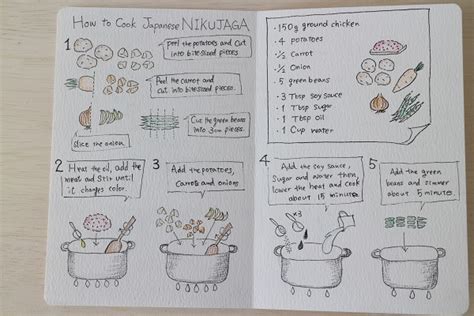 How to Cook Japanese NIKUJAGA
1
Peel the potatoes and cut
into bite-sized pieces.
Peel the carrot and
cut into bite-sized pieces.
Cut the green beans
into 3cm pieces.
Slice the onion.
2
Heat the oil, add the
meat and stir until
it changes color.
3
Add the potatoes,
carrots and onions
・150g ground chicken
・4 potatoes
・½ carrot
・½ onion
・5 green beans
・3 Tbsp soy sauce
・1 Tbsp sugar
・1 Tbsp oil
・1 Cup water
4
Add the soy sauce,
sugar and water then,
lower the heat and cook
about 15 minutes.
×3
5
Add the green
beans and simmer
about 5 minutes.